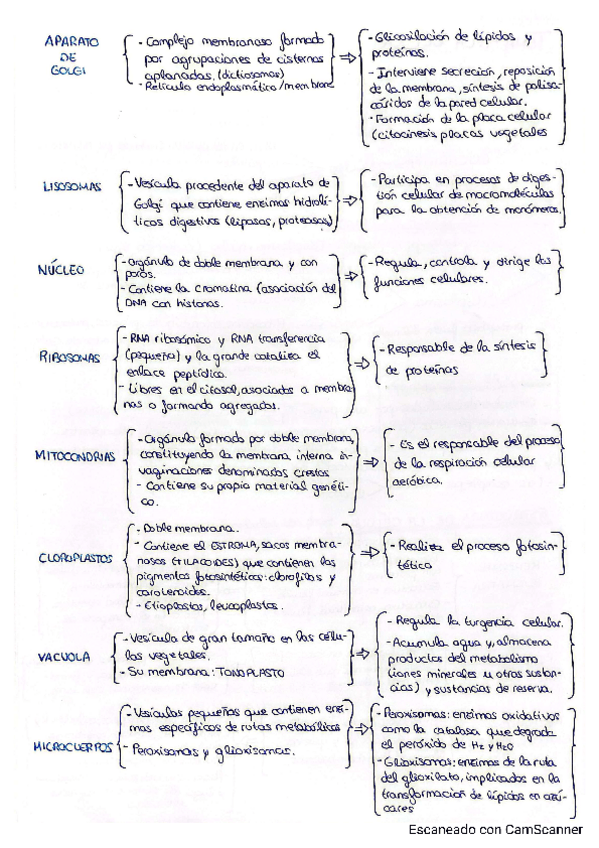 APARATO
DE
GOLGI
- Complejo membranoso formado
por agrupaciones de cisternas
aplanadas. (dictiosomas)
- Retículo endoplasmático/membran
- Glicosilación de lípidos y
proteínas.
- Interviene secreción, reposición
de la membrana, síntesis de polisa-
cáridos de la pared celular.
- Formación de la placa celular
(citocinesis placas vegetales
LISOSOMAS
- Vesícula procedente del aparato de
Golgi que contiene enzimas hidrolí-
ticas digestivas (lipasas, proteasas)
- Participa en procesos de diges-
tión celular de macromoléculas
para la obtención de monómeros.
NÚCLEO
- Orgánulo de doble membrana y con
poros.
- Contiene la cromatina (asociación del
DNA con histonas.
- Regula, controla y dirige las
funciones celulares.
RIBOSOMAS
- RNA ribosómico y RNA transferencia
(pequeña) y la grande cataliza el
enlace peptídico.
- Libres en el citosol, asociados a membra-
nas o formando agregados.
- Responsable de la síntesis
de proteínas
MITOCONDRIAS
- Orgánulo formado por doble membrana,
constituyendo la membrana interna in-
vaginaciones denominadas crestas
- Contiene su propio material genéti-
co.
- Es el responsable del proceso
de la respiración celular
aeróbica.
CLOROPLASTOS
- Doble membrana.
- Contiene el ESTROMA, sacos membra-
nosos (TILACOIDES) que contienen los
pigmentos fotosintéticos: clorofilas y
carotenoides.
- Etioplastos, leucoplastos.
- Realiza el proceso fotosin-
tético
VACUOLA
- Vesícula de gran tamaño en las célu-
las vegetales.
- Su membrana: TONOPLASTO
- Regula la turgencia celular.
- Acumula agua y almacena
productos del metabolismo
(iones minerales u otras sustan-
cias) y sustancias de reserva.
MICROCUERPOS
- Vesículas pequeñas que contienen enzi-
mas específicos de rutas metabólicas
- Peroxisomas y glioxisomas.
- Peroxisomas: enzimas oxidativos
como la catalasa que degrada
el peróxido de H2 y H2O
- Glioxisomas: enzimas de la ruta
del glioxilato, implicados en la
transformación de lípidos en azú-
cares
Escaneado con CamScanner